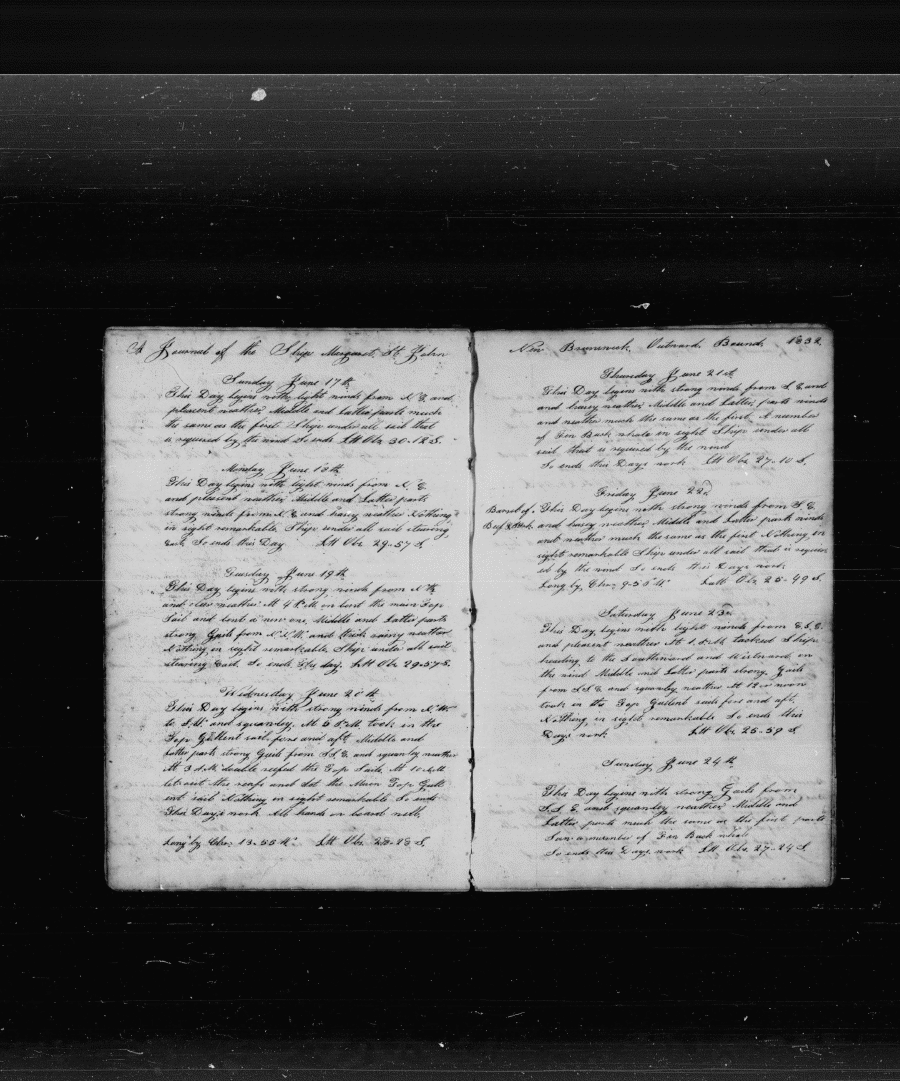 A Journal of the Ship Margaret St John
Sunday June 17th
This Day begins with light winds from N. E. and
pleasent weather Middle and Latter parts much
the same as the first Ship under all sail that
is required by the wind So ends Latt Obs 30-12 S.
Monday June 18th
This Day begins with light winds from N. E.
and pleasent weather Middle and Latter parts
strong winds from N. E. and hasey weather Nothing
in sight remarkable, Ship under all sail steering
East So ends this Day Latt Obs 29-57 S
Tuesday June 19th
This Day begins with strong winds from N. W.
and clear weather At 4 P.M. on bent the main Top
Sail and bent a new one, Middle and Latter parts
strong Gails from N. N. W. and thick rainy weather
Nothing in sight remarkable, Ship under all sail
steering East. So ends this day. Latt Obs 29-57 S.
Wednesday June 20th
This Day begins with strong winds from N. W.
to S. W. and squanley. At 6 P.M. took in the
Top Gallent sail fore and aft Middle and
Latter parts strong Gails from S. S. E. and squanley weather
At 3 A.M. double reefed the Top Sails At 10 A.M.
let out the reefs and set the Main Top Gall
ent sail Nothing in sight remarkable. So ends
this Day's work All hands on board well.
Long by Chro. 13-55 W. Latt Obs 28-28 S.
New Brunswick Outward Bound 1832
Thursday June 21st
This Day begins with strong winds from S. E. and
and hasey weather Middle and Latter parts winds
and weather much the same as the first A number
of Fin Back whale in sight Ship under all
sail that is required by the wind
So ends this Days work Latt Obs 27-10 S.
Friday June 22d
Barrel of
Beef & Pork
This Day begins with strong winds from S. E.
and hasey weather Middle and Latter parts winds
and weather much the same as the first Nothing in
sight remarkable Ship under all sail that is requir
ed by the wind So ends this Days work
Long by, Chro, 9-53 W Latt Obs 25-49 S.
Saturday June 23d
This Day begins with light winds from E. S. E.
and pleasent weather At 1 P.M. tacked Ship
heading to the Southward and Westward on
the wind Middle and Latter parts strong Gails
from S. S. E. and squanley weather At 12 or noon
took in the Top Gallent sails fore and aft.
Nothing in sight remarkable So ends this
Days work Latt Obs 25-59 S
Sunday June 24th
This Day begins with strong Gails from
S. S. E. and squanley weather Middle and
Latter parts much the same as the first parts
Saw a number of Fin Back whale
So ends this Days work Latt Obs 27-24 S